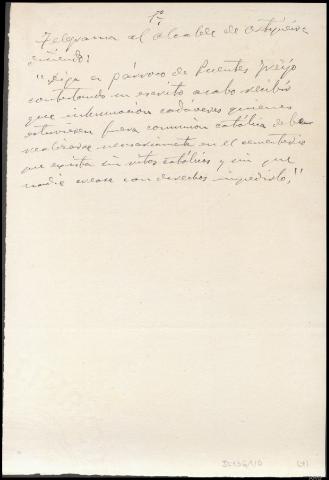 1º
Telegrama al alcalde de Ortigueira
diciendo:
"Diga a párroco de Fuentes
contestando su escrito acabo recibir
que inhumación cadáveres quienes
estuviesen fuera comunión católica debe
realizarse necesariamente en el cementerio
que exista sin ritos católicos y sin que
nadie crease con derechos impedirlo."
(1)